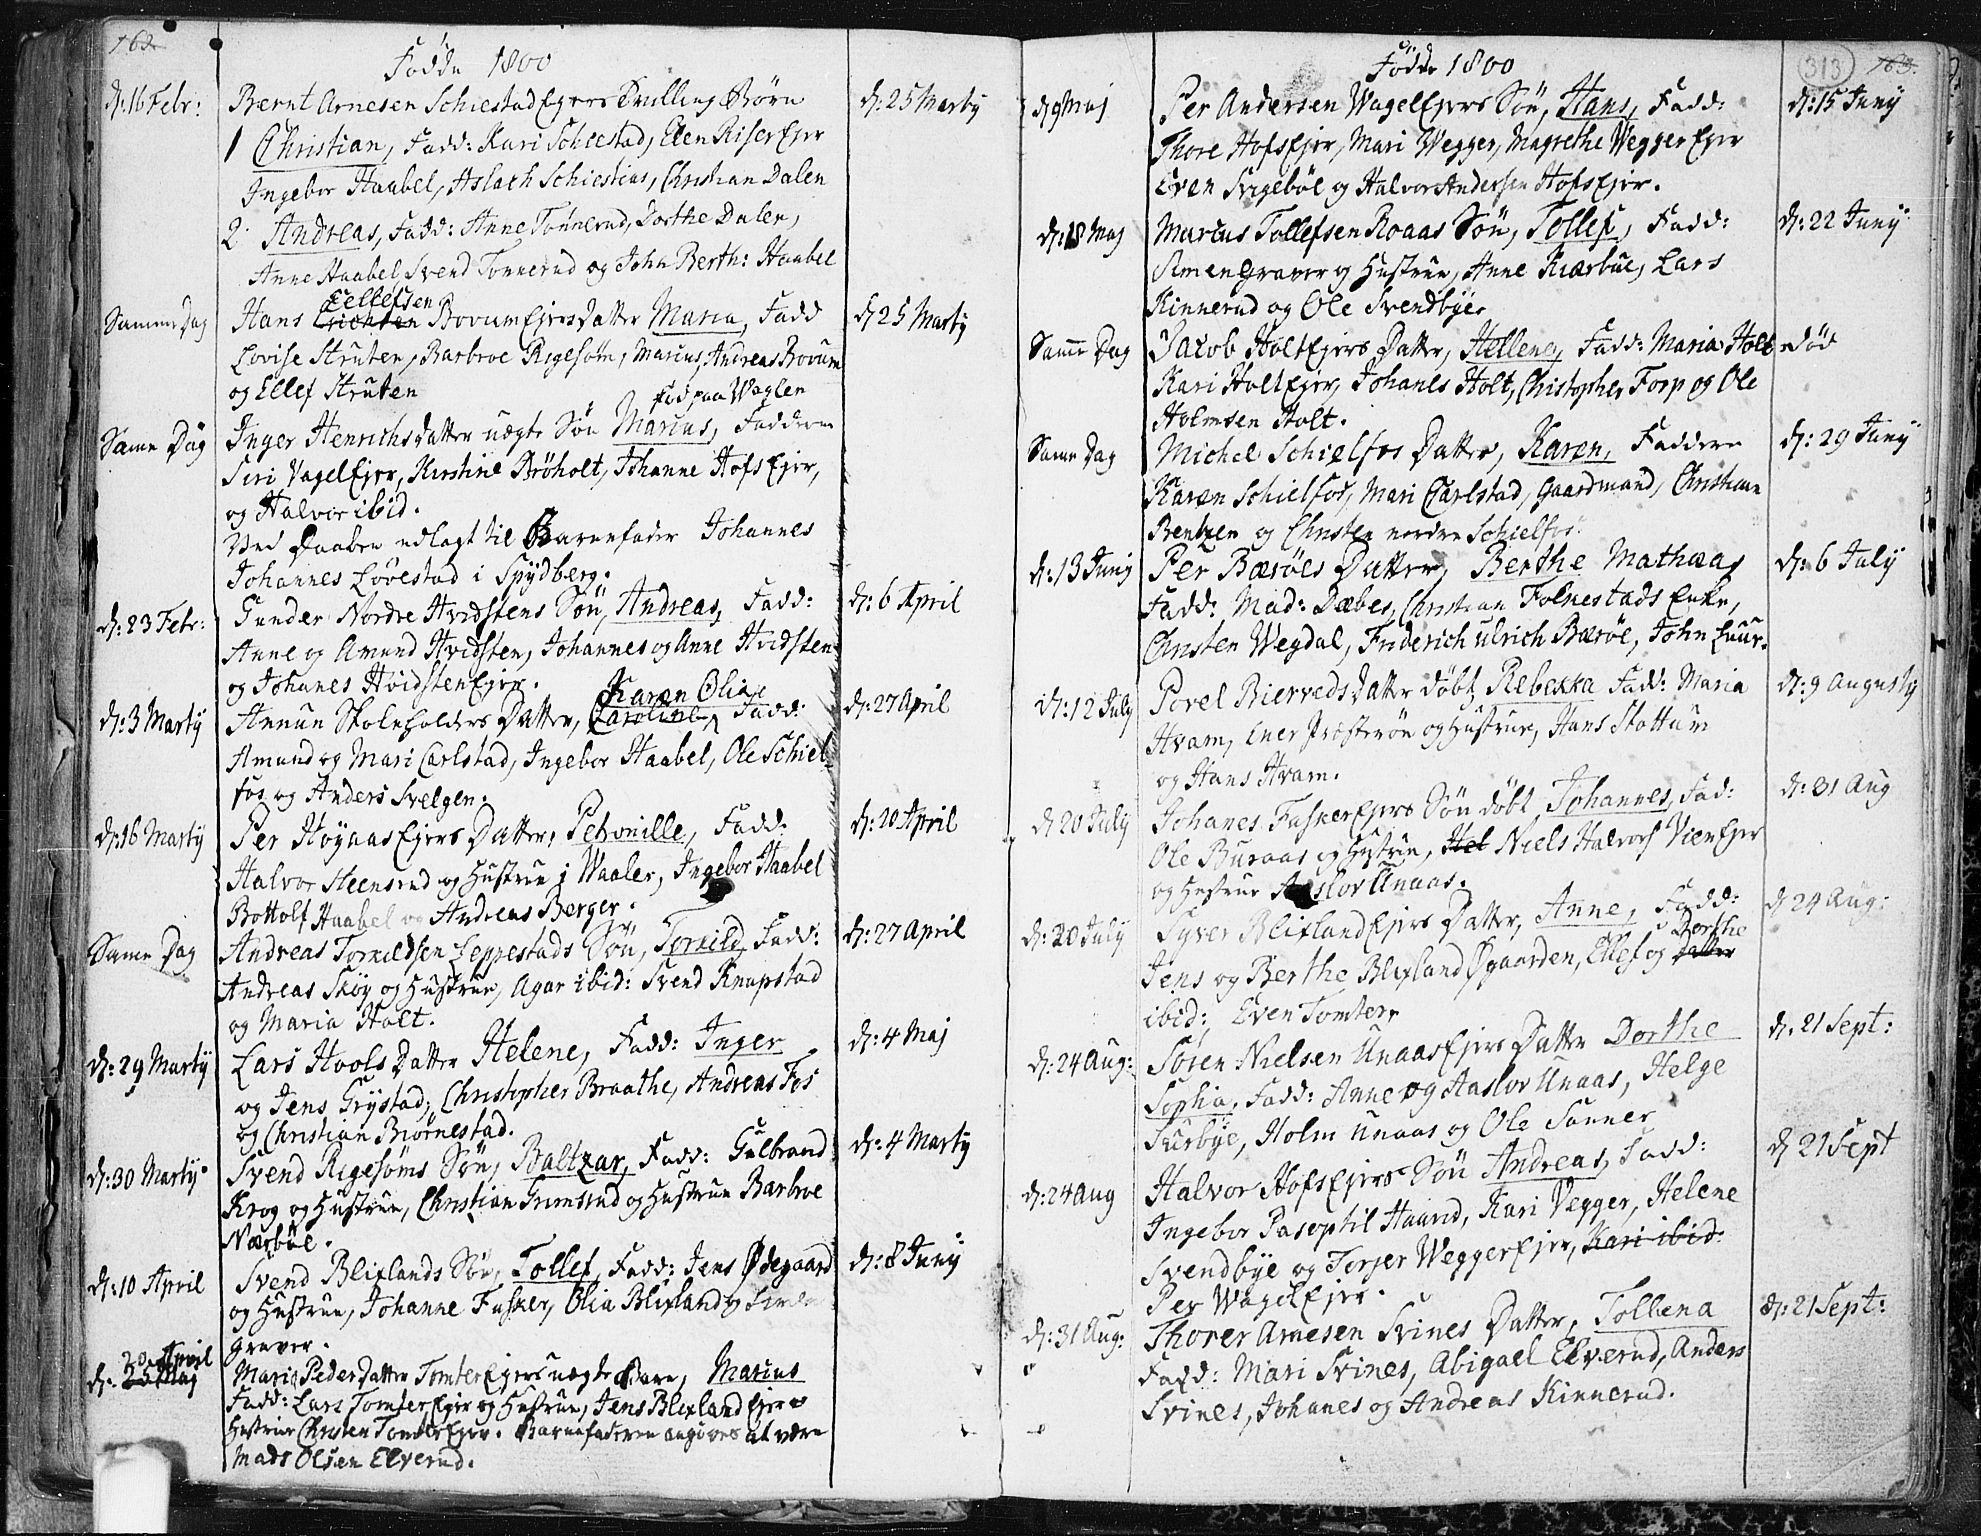 162.
Fødde 1800
d: 16 Febr: Bernt Arnesen Schiestad Ejers Tvilling Børn d: 25 Marty
1 Christian, Fadd: Kari Schiestad, Elen Riser Ejer
Ingebor Haabel, Aslach Schiestius, Christian Dalen
2. Andreas, Fadd: Anne Tønnerud, Dorthe Dalen,
Anne Haabel Svend Tonnerud og John Berth: Haabel
Eellefsen
Samme Dag Hans Erichsen Bovum Ejers Datter Maria, Fadd d 25 Marty
Lovise Struten, Barbroe Rigesøm, Marius, Andreas Bovum
og Ellef Struten
Fød paa Waglen
Samme Dag Inger Henrichsdatter uægte Søn Marius, Faddere
Siri Vagel Ejer, Kirstine Brøholt, Johanne Hofs Ejer,
og Halvor ibid.
Ved Daaben udlagt til Barnefader Johannes
Johannes Løvestad i Spydberg.
d: 23 Febr: Gunder Nordre Hvidstens Søn, Andreas, Fadd: d: 6 April
Anne og Amund Hvidsten, Johannes og Anne Hvidsten
og Johanes Hvidsten Ejer.
Karen Olia
d: 3 Marty Annun Skoleholders Datter, Caroline, Fadd: d: 27 April
Amund og Mari Carlstad, Ingebor Haabel, Ole Schiel-
fos og Anders Svelgen.
d: 16 Marty Per Høyaas Ejers Datter, Petronille, Fadd: d: 20 April
Halvor Steensrud og Hustrue i Waaler, Ingebor Haabel
Bottolf Haabel og Andreas Berger.
Samme Dag Andreas Torkildsen Leppestads Søn, Torkild, Fadd: d: 27 April
Andreas Skøy og Hustrue, Agar ibid: Svend Knapstad
og Maria Holt.
d: 29 Marty Lars Hools Datter Helene, Fadd: Inger d: 4 Maj
og Jens Grystad, Christopher Braathe, Andreas Fos
og Christian Biørnestad.
d: 30 Marty Svend Rigesøms Søn, Baltzar, Fadd: Gulbrand d: 4 Marty
Krog og Hustrue, Christian Grimsrud og Hustrue Barbroe
Nærbøe.
d: 10 April Svend Blixlands Søn, Tollef, Fadd: Jens Ødegaard d: 8 Juny
og Hustrue, Johanne Fusker, Olia Blixland og Simen
Graver.
20 April
d: 25 Maj Mari Pedersdatter Tomter Ejers uægte Barn, Marius
Fadd: Lars Tomter Ejer og Hustrue, Jens Blixland Ejer
Hustrue Christen Tomter Ejer. Barnefaderen angives at være
Mads Olsen Elverud.
Fødde 1800
313 163.
d 9 Maj Per Andersen Wagel Ejers Søn, Hans, Fadd: d: 15 Juny
Thore Hofs Ejer, Mari Wegger, Magrethe Wegger Ejer
Even Svigebøl og Halvor Andersen Hofs Ejer.
d: 18 Maj Marius Tollefsen Roaas Søn, Tollef, Fadd: d: 22 Juny
Simen Graver og Hustrue, Anne Kiærbue, Lars
Kinnerud og Ole Svendbye.
Samme Dag Jacob Holt Ejers Datter, Hellene, Fadd: Maria Holt død
Kari Holt Ejer, Johanes Holt, Christopher Fosp og Ole
Holmsen Holt.
Samme Dag Michel Schielfos Datter, Karen, Faddere d: 29 Juny
Karen Schielfos, Mari Carlstad, Gaardmand, Christian
Bentzen og Christen nordre Schielfos.
d: 13 Juny Per Bærøes Datter, Berthe Mathea, d: 6 July
Fadd: Mad: Dæbes, Christian Folkestads Enke,
Christen Wegdal, Friderich Ulrich Bærøe, John Luur.
d: 12 July Povel Bierveds Datter døbt Rebekka Fadd: Maria d: 9 Augusty
Hvam, Iver Præsterøn og Hustrue, Hans Stottum
og Hans Hvam.
d 20 July Johanes Fusker Ejers Søn døbt Johannes, Fad: d: 31 Aug
Ole Buraas og Hustrue, Hel Niels Halvors Vien Ejer
og Hustrue Aaslov Unaas.
d: 20 July Syver Blixland Ejers Datter, Anne, Fadd: d 24 Aug:
Dorthe
Jens og Berthe Blixland Øgaarden, Ellef og Datter
ibid: Even Tomter
d: 24 Aug: Søren Nielsen Unaas Ejers Datter Dorthe d: 21 Sept:
Sophia, Fadd: Anne og Aaslov Unaas, Helge
Huusbye, Holm Unaas og Ole Sanner
d: 24 Aug Halvor Hofs Ejers Søn Andreas, Fadd: d 21 Sept
Ingebor Pasoptil Haarid, Kari Vegger, Helene
Svendbye og Torjer Wegger Ejer, Kari ibid:
Per Wagel Ejer.
d: 31 Aug: Thorer Arnesen Svines Datter, Tollena d: 21 Sept:
Fadd: Mari Svines, Abigael Elverud, Anders
Svines, Johanes og Andreas Kinnerud.